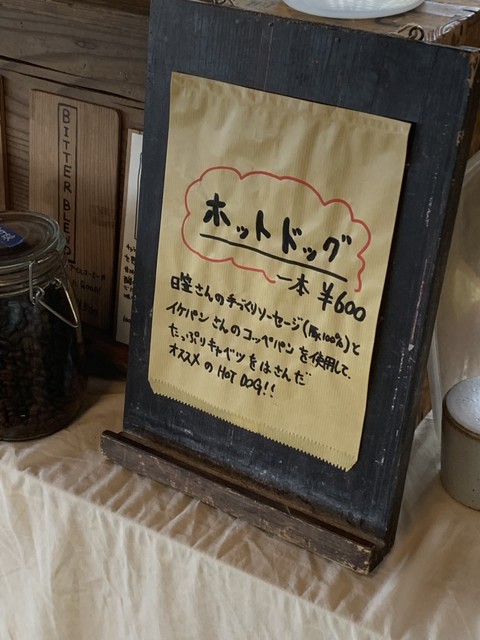 ホットドッグ
一本 ¥600
日笠さんの手づくりソーセージ(豚100%)と
イケパンさんのコッペパンを使用して、
たっぷりキャベツをはさんだ
オススメの HOT DOG!!
BITTER BLEND